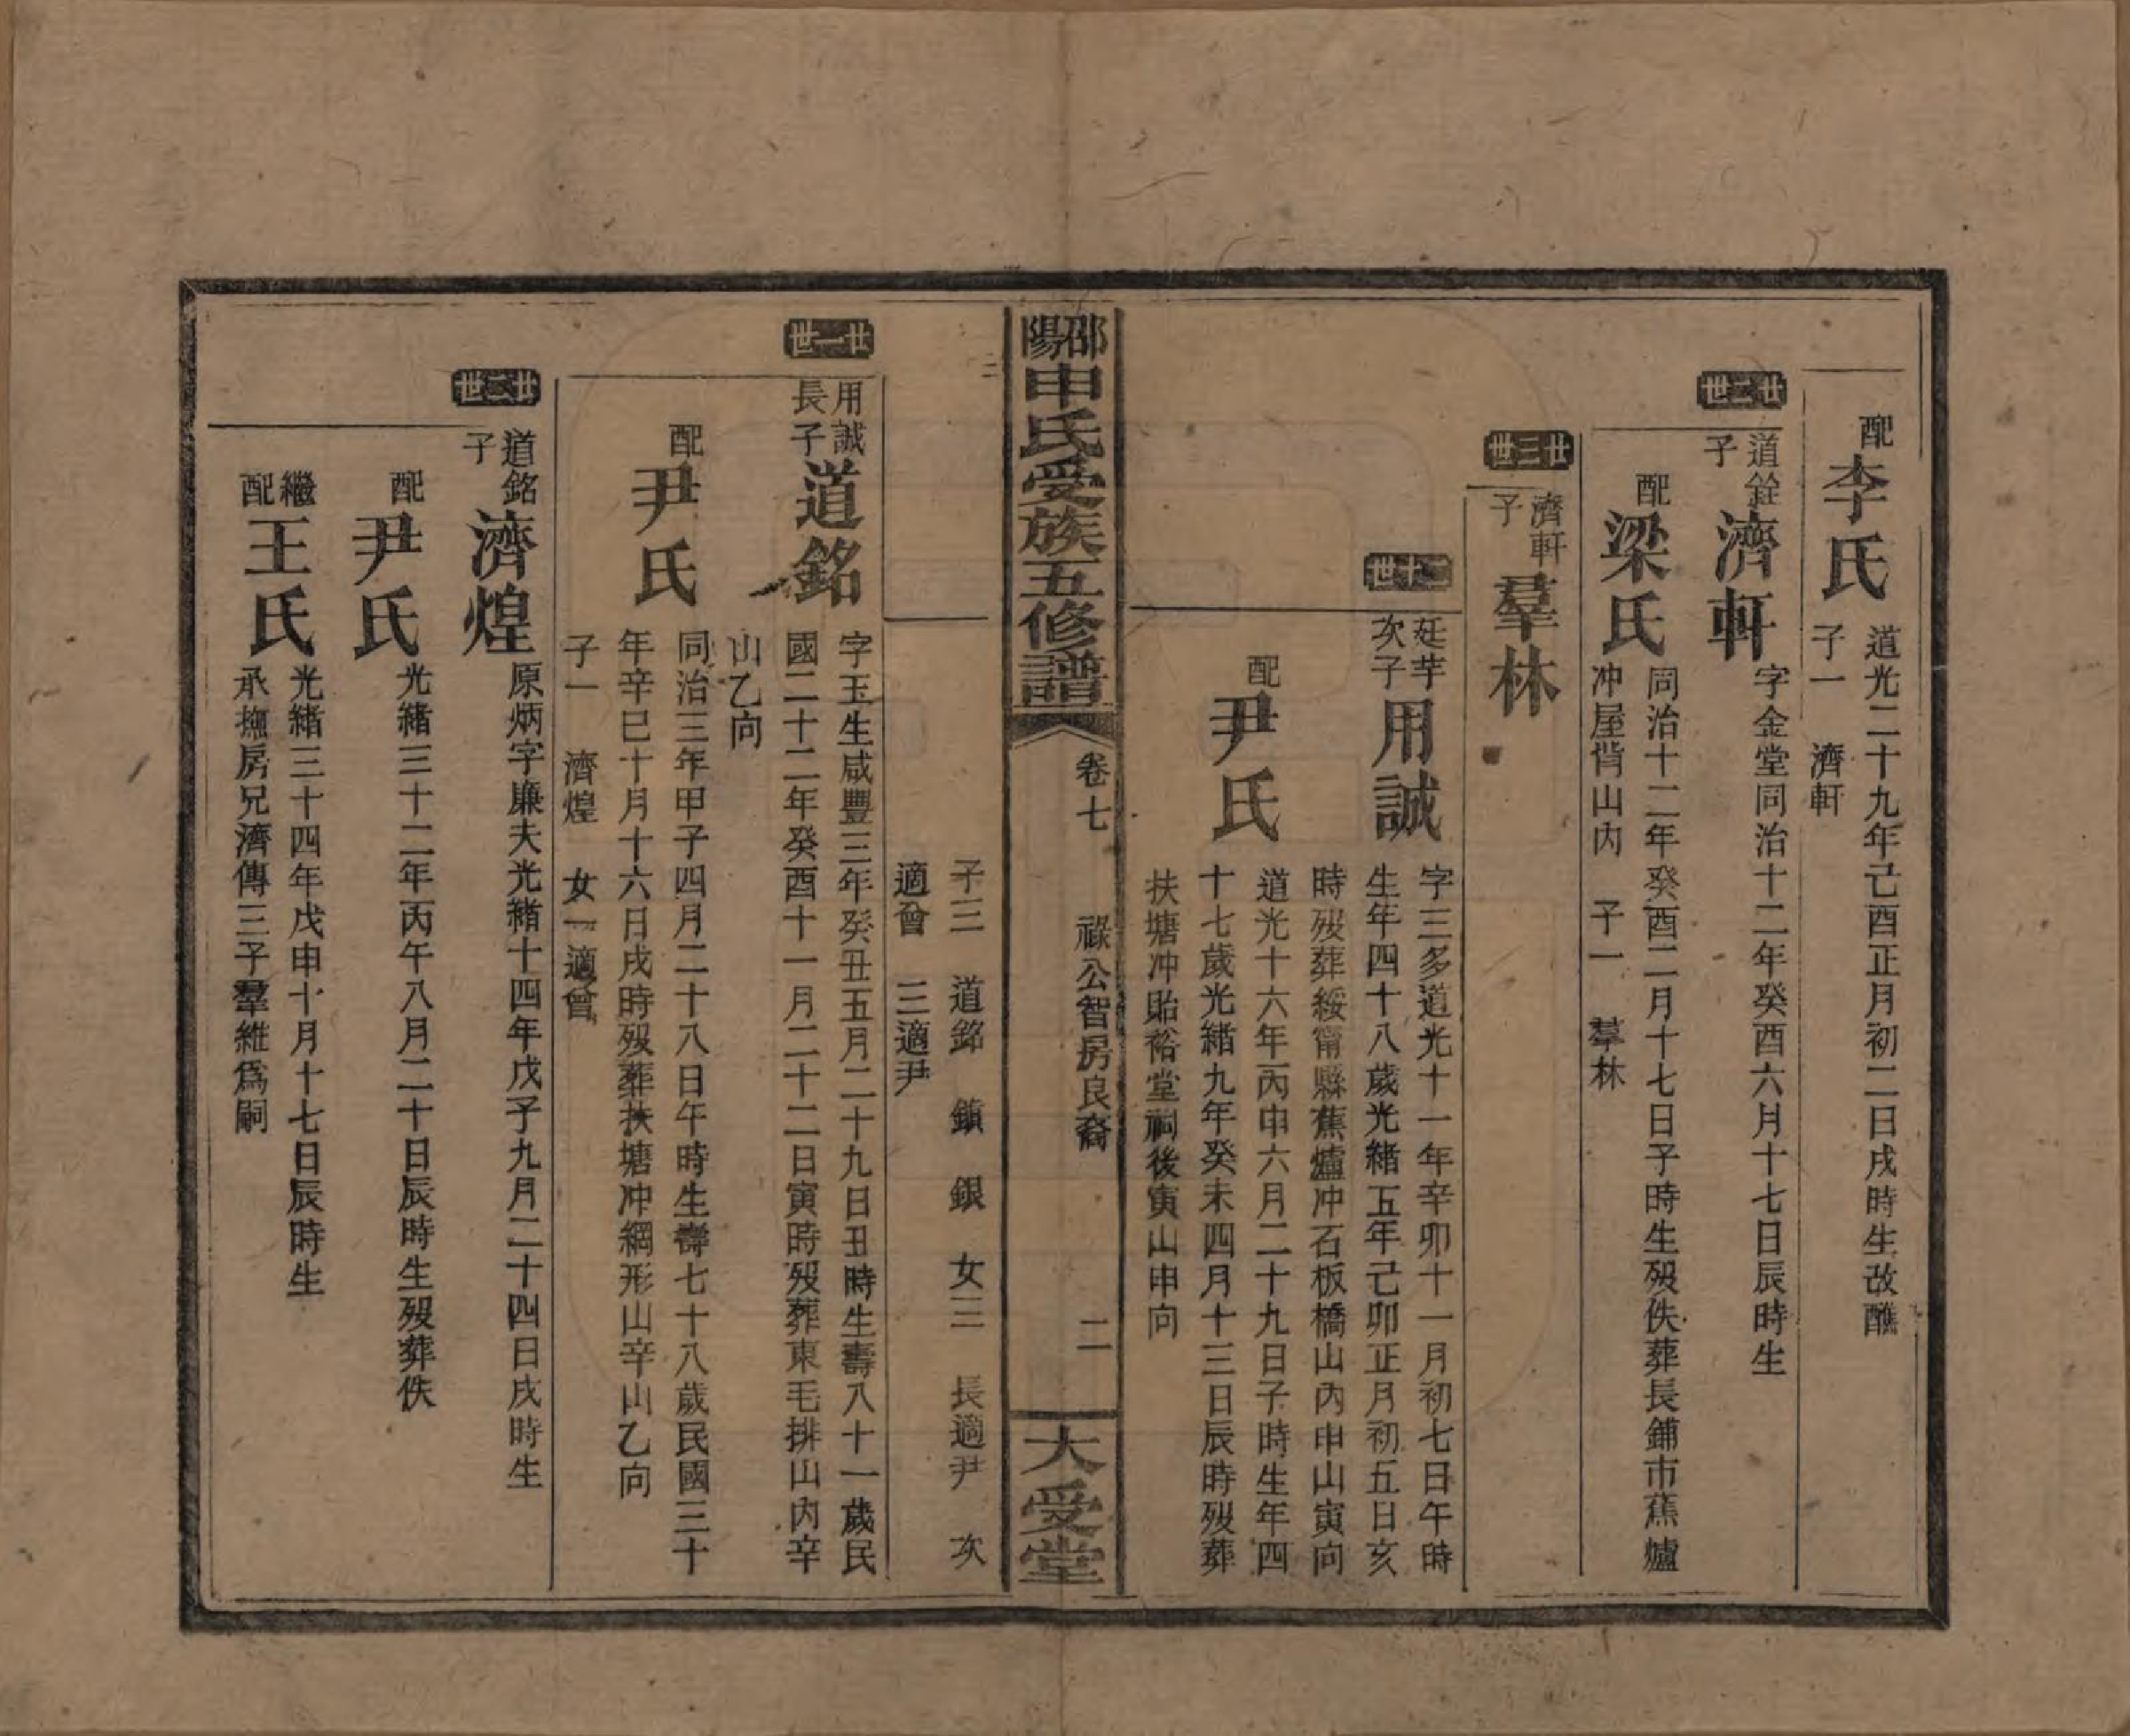 配
李氏
道光二十九年己酉正月初二日戌時生改醮
子一　濟軒
廿二世
道銓
子
濟軒
字金堂同治十二年癸酉六月十七日辰時生
配
梁氏
同治十二年癸酉二月十七日子時生歿佚葬長鋪市蕉爐
冲屋背山內　子一　羣林
廿三世
濟軒
子
羣林
二十世
廷芋
次子
用誠
字三多道光十一年辛卯十一月初七日午時
生年四十八歲光緒五年己卯正月初五日亥
時歿葬綏甯縣蕉爐冲石板橋山內申山寅向
配
尹氏
道光十六年丙申六月二十九日子時生年四
十七歲光緒九年癸未四月十三日辰時歿葬
扶塘冲貽裕堂祠後寅山申向
邵陽申氏受族五修譜
卷七
祿公智房良裔
二
大受堂
子三　道銘　鎮　銀　女三　長適尹　次
適曾　三適尹
廿一世
用誠
長子
道銘
字玉生咸豐三年癸丑五月二十九日丑時生壽八十一歲民
國二十二年癸酉十一月二十二日寅時歿葬東毛排山內辛
山乙向
配
尹氏
同治三年甲子四月二十八日午時生壽七十八歲民國三十
年辛巳十月十六日戌時歿葬扶塘冲綱形山辛山乙向
子一　濟煌　女一適曾
廿二世
道銘
子
濟煌
原炳字廉夫光緒十四年戊子九月二十四日戌時生
配
尹氏
光緒三十二年丙午八月二十日辰時生歿葬佚
繼
配
王氏
光緒三十四年戊申十月十七日辰時生
承撫房兄濟傳三子羣維爲嗣